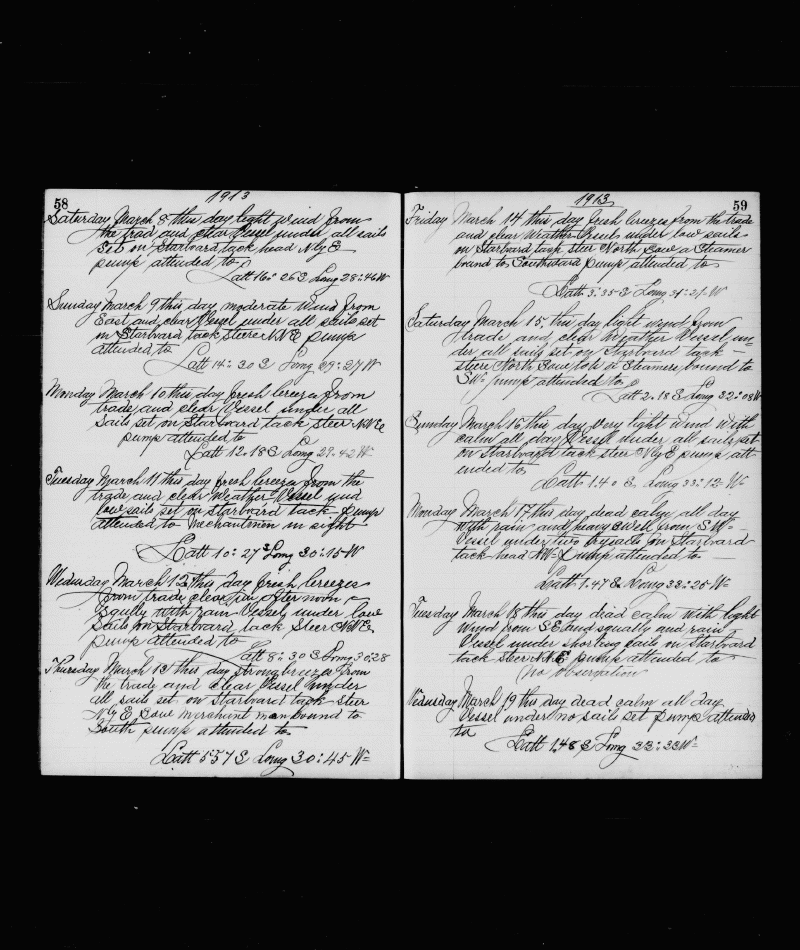 58
1913
Saturday March 8 this day light wind from
the trad and clear Vessel under all sails
set on Starboard tack head Nly E
pump attended to
Latt 16:26 S Long 28:46 W
Sunday March 9 this day moderate wind from
East and clear Vessel under all sails set
on Starbvard tack steer N.N.E pump
attended to
Latt 14:30 S Long 29:27 W
Monday March 10 this day fresh breeze from
trade and clear Vessel under all
sails set on Starbvard tack steer N.N.E
pump attended to
Latt 12:18 S Long 29:42 W
Tuesday March 11 this day fresh breeze from the
trade and clear weather Vessel und
low sails set on Starbvard tack pump
attended to Mechantmen in sight
Latt 10:27 S Long 30:15 W
Wednsday March 12 this day fresh breezes
from trade clear after noon
squlley with rain Vessel under low
sails on Starbvard tack Steer N.N.E.
pump attended to
Latt 8:30 S Long 30:28
Thursday March 13 this day strong breezes from
the trade and clear Vessel under
all sails set on Starbvard tack steer
Nly E Saw merchant man bound to
South pump attended to
Latt 5 57 S Long 30:45 W
1913
59
Friday March 14 this day fresh breezes from the trade
and clear weather Vessel under low sails
on Starbvard tack steer North Saw a Steamer
bound to Southward pump attended to
Latt 3:35 S Long 31:21 W
Saturday March 15, this day light wind from
trade and clear weather Vessel un
der all sails set on Starbvard tack
steer North Saw a Steamer bound to
SW pump attended to
Latt 2.18 S Long 32:08 W
Sunday March 16 this day very light wind with
calm all day Vessel under all sails set
on Starbvard tack steer Nly E pump att
ended to
Latt 1.40 S Long 33:12 W
Monday March 17 this day dead calm all day
with rain and heavy swell from S.W.
Vessel under two trysails on Starbvard
tack head NW Pump attended to
Latt 1.47 S Long 33:25 W
Tuesday March 18 this day dead calm with light
wind from S.E and squally and rain
Vessel under shorting sails on Starbvard
tack steer N.N.E pump attended to
no observation
Wednusday March 19 this day dead calm all day
Vessel under no sails set pump attended
to
Latt 1.48 S Long 33:33 W